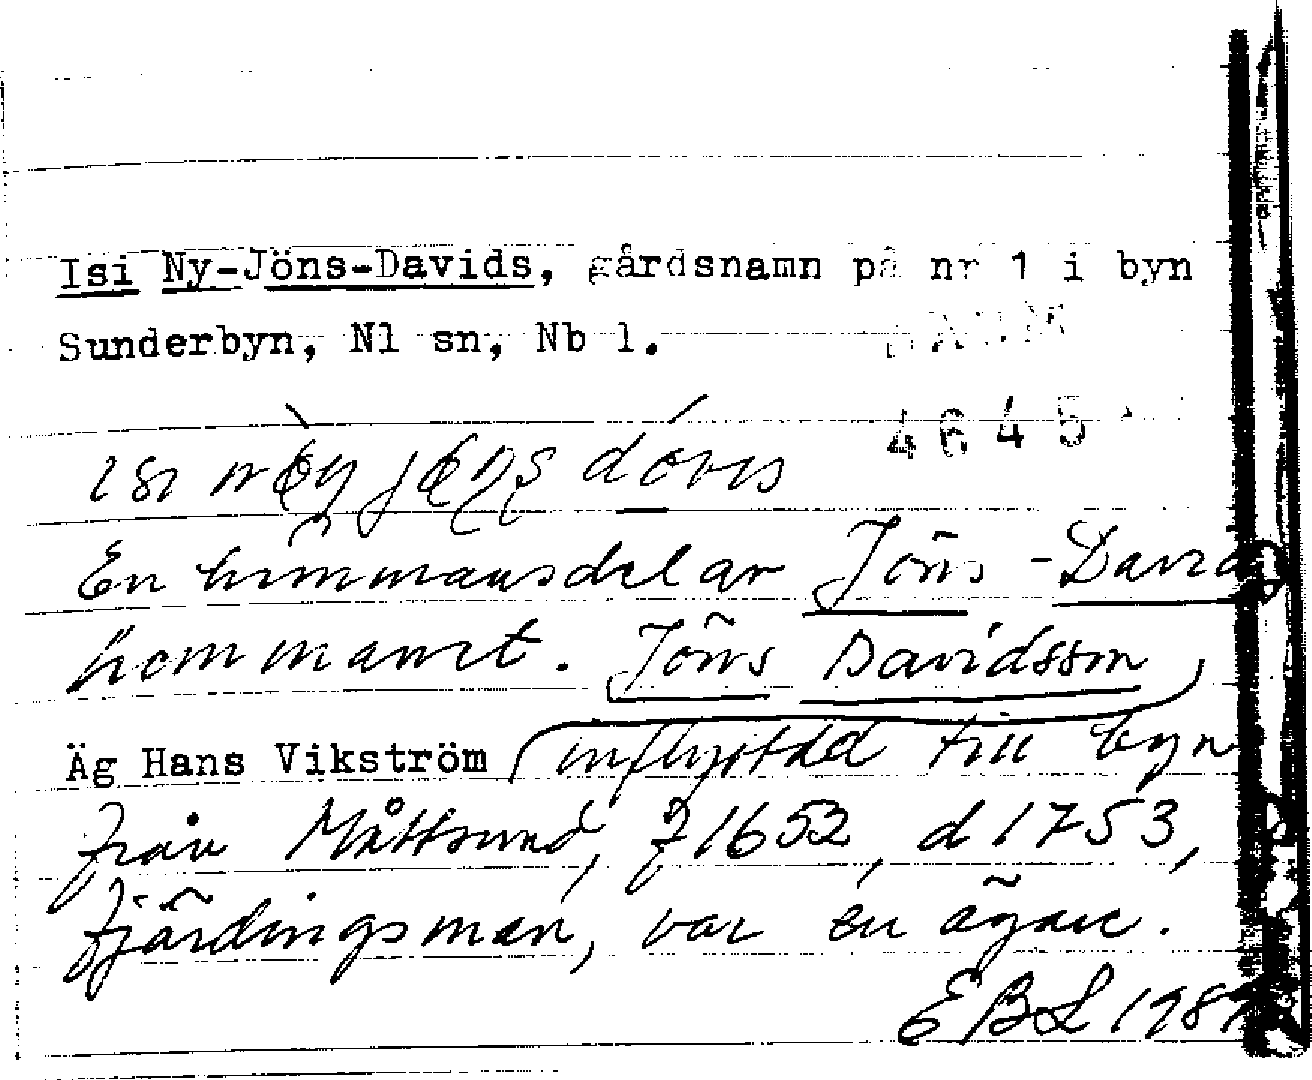 Isi Ny-Jöns-Davids, gårdsnamn på nr 1 i byn
Sunderbyn, Nl sn, Nb l.
DAUM
4645
isi
En hemmansdel av Jöns-Davids
hemmanet. Jöns Davidsson,
Äg Hans Vikström (inflyttad till byn
från Måttsund, f 1652, d 1753,
fjärdingsman, var en ägare.
EBL